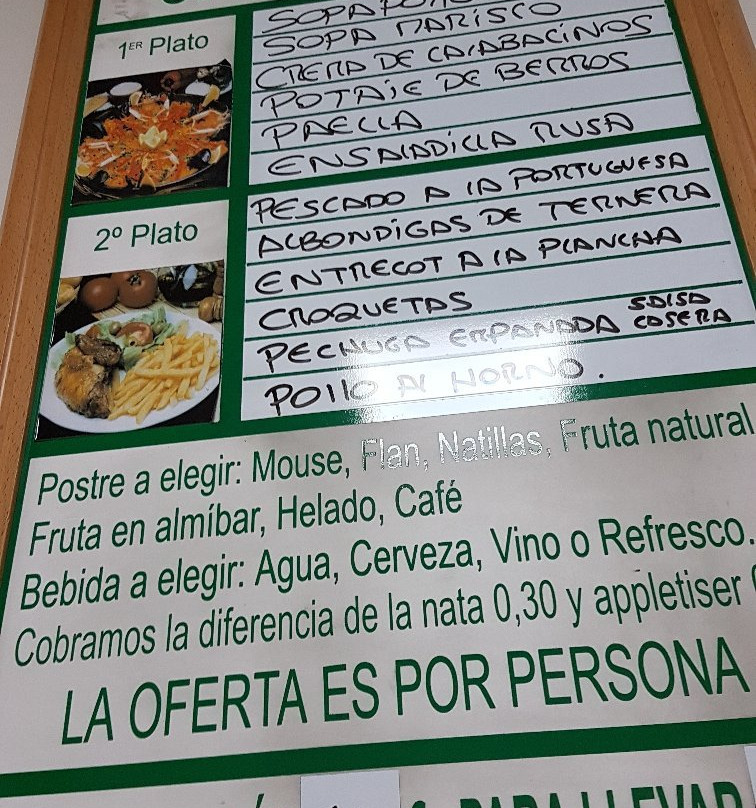 1ER Plato
SOPA
SOPA MARISCO
CREMA DE CALABACINOS
POTAJE DE BERROS
PAELLA
ENSALADILLA RUSA
2º Plato
PESCADO A LA PORTUGUESA
ALBONDIGAS DE TERNERA
ENTRECOT A LA PLANCHA
CROQUETAS
PECHUGA EMPANADA SALSA COSERA
POLLO AL HORNO.
Postre a elegir: Mouse, Flan, Natillas, Fruta natural
Fruta en almíbar, Helado, Café
Bebida a elegir: Agua, Cerveza, Vino o Refresco.
Cobramos la diferencia de la nata 0,30 y appletiser
LA OFERTA ES POR PERSONA
PARA LLEVAR